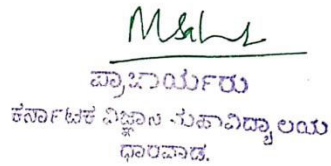 ಪ್ರಾಚಾರ್ಯರು
ಕರ್ನಾಟಕ ವಿಜ್ಞಾನ ಮಹಾವಿದ್ಯಾಲಯ
ಧಾರವಾಡ.